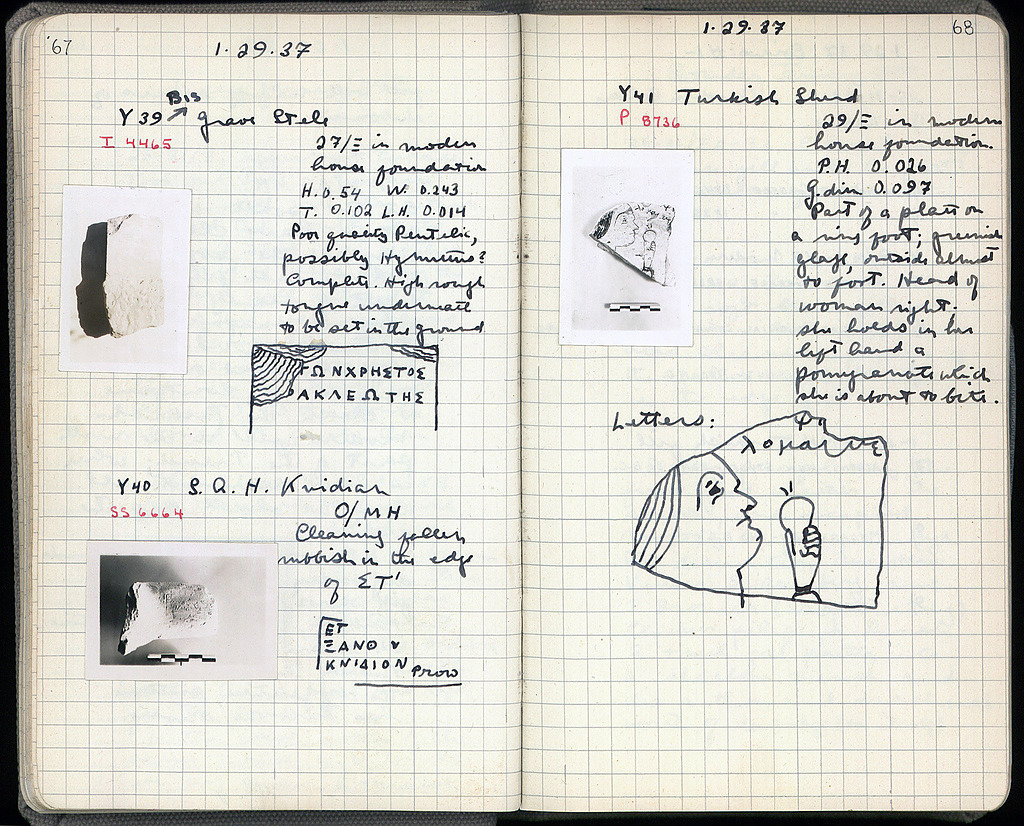 '67
1·29·37
Bis
Y 39 Grave Stele
I 4465
27/Ξ in modern
house foundation
H. 0.54 W. 0.243
T. 0.102 L.H. 0.014
Poor quality Pentelic,
possibly Hymettus?
Complete. High rough
tongue underneath
to be set in the ground
ΓΩΝΧΡΗΣΤΟΣ
ΑΚΛΕΩΤΗΣ
Y40 S. A. H. Knidian
SS 6664
O/MH
Cleaning fallen
rubbish in the edge
of ΣΤ'
ΕΤ
ΞΑΝΘ
ΚΝΙΔΙΟΝ Prow
68
1·29·37
Y41 Turkish Sherd
P 8736
29/Ξ in modern
house foundation.
P.H. 0.026
G.dim 0.097
Part of a plate on
a ring foot; greenish
glaze, outside almost
to foot. Head of
woman right.
she holds in her
left hand a
pomegranate which
she is about to bite.
Letters: